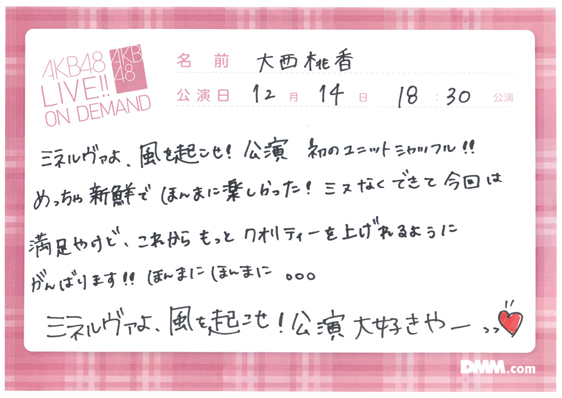 AKB48
LIVE!!
ON DEMAND
AKB
48
名前 大西桃香
公演日 12月 14日 18:30 公演
ミネルヴァよ、風を起こせ! 公演 初のユニットシャッフル!!
めっちゃ新鮮で ほんまに楽しかった! ミスなくできて今回は
満足やけど、これから もっと クオリティーを上げれるように
がんばります!! ほんまに ほんまに 。。。
ミネルヴァよ、風を起こせ! 公演 大好きやー
DMM.com